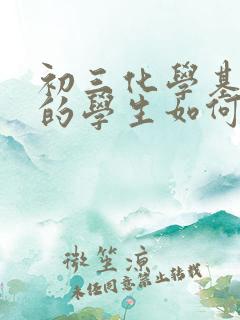 初三化學基
的學生如何
微笙涼
未任同意禁止转载